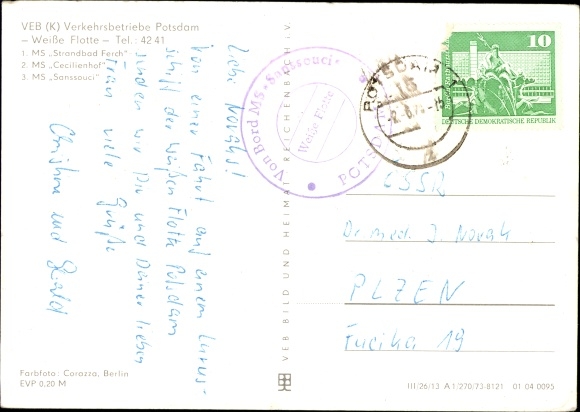 VEB (K) Verkehrsbetriebe Potsdam
– Weiße Flotte – Tel.: 42 41
1. MS „Strandbad Ferch“
2. MS „Cecilienhof“
3. MS „Sanssouci“
Liebe Novaks!
Von einer Fahrt auf einem Luxus-
schiff der weißen Flotte Potsdam
senden wir Dir und Deiner lieben
Frau viele Grüße
Christina und
Farbfoto: Corazza, Berlin
EVP 0,20 M
VEB BILD UND HEIMAT REICHENBACH i. V.
Von Bord MS „Sanssouci“
Weiße Flotte
POTSDAM
POTSDAM
15
10
DEUTSCHE DEMOKRATISCHE REPUBLIK
ČSSR
Dr. med. J. Novak
PLZEN
Fucika 19
III/26/13 A 1/270/73-8121 01 04 0095